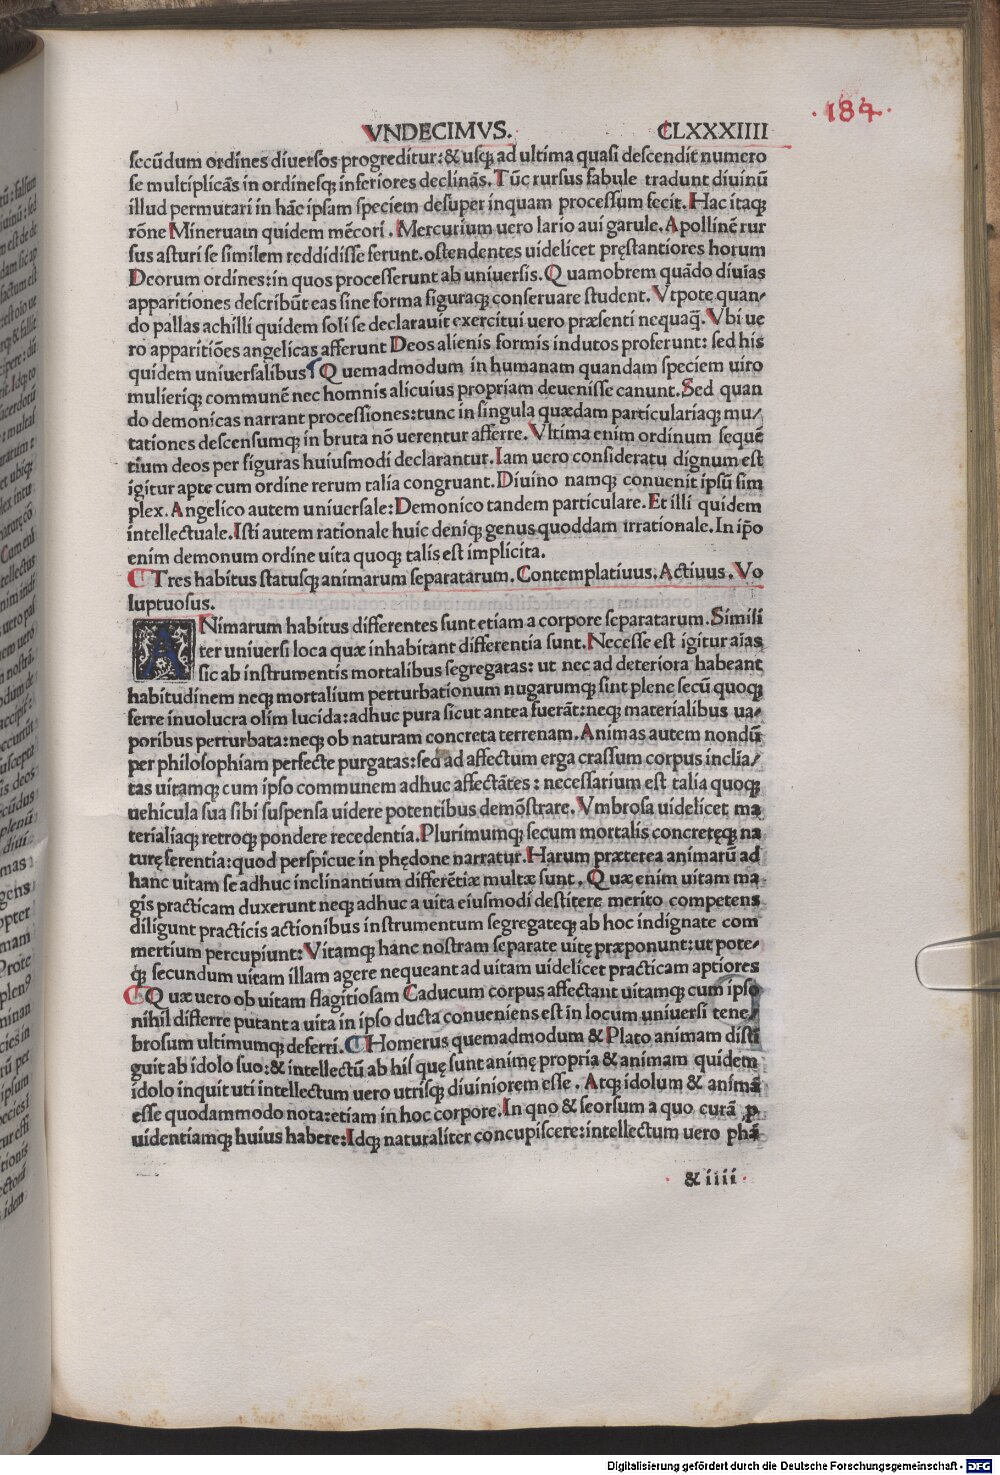 VNDECIMVS. CLXXXIIII
·184·
secūdum ordines diuersos progreditur: & usq; ad ultima quasi descendit numero
se multiplicās in ordinesq; inferiores declinās. Tūc rursus fabule tradunt diuinū
illud permutari in hāc ipsam speciem desuper inquam processum fecit. Hac itaq;
rōne Mineruam quidem mētori. Mercurium uero lario aui garule. Apollinē rur
sus asturi se similem reddidisse ferunt. ostendentes uidelicet pręstantiores horum
Deorum ordines: in quos processerunt ab uniuersis. Quamobrem quādo diuias
apparitiones describūt eas sine forma figuraq; conseruare student. Vtpote quan-
do pallas achilli quidem soli se declarauit exercitui uero præsenti nequaq̄. Vbi ue
ro apparitiōes angelicas afferunt Deos alienis formis indutos proferunt: sed his
quidem uniuersalibus Quemadmodum in humanam quandam speciem uiro
mulieriq; communē nec homnis alicuius propriam deuenisse canunt. Sed quan
do demonicas narrant processiones: tunc in singula quædam particulariaq; mu/
tationes descensumq; in bruta nō uerentur afferre. Vltima enim ordinum sequē
tium deos per figuras huiusmodi declarantur. Iam uero consideratu dignum est
igitur apte cum ordine rerum talia congruant. Diuino namq; conuenit ipsū sim
plex. Angelico autem uniuersale: Demonico tandem particulare. Et illi quidem
intellectuale. Isti autem rationale huic deniq; genus quoddam irrationale. In ip̄o
enim demonum ordine uita quoq; talis est implicita.
Tres habitus statusq; animarum separatarum. Contemplatiuus. Actiuus. Vo
luptuosus.
ANimarum habitus differentes sunt etiam a corpore separatarum. Simili
ter uniuersi loca quæ inhabitant differentia sunt. Necesse est igitur aīas
sic ab instrumentis mortalibus segregatas: ut nec ad deteriora habeant
habitudinem neq; mortalium perturbationum nugarumq; sint plene secū quoq;
ferre inuolucra olim lucida: adhuc pura sicut antea fuerāt: neq; materialibus ua-
poribus perturbata: neq; ob naturam concreta terrenam. Animas autem nondū
per philosophiam perfecte purgatas: sed ad affectum erga crassum corpus inclia/
tas uitamq; cum ipso communem adhuc affectātes: necessarium est talia quoq;
uehicula sua sibi suspensa uidere potentibus demōstrare. Vmbrosa uidelicet ma
terialiaq; retroq; pondere recedentia. Plurimumq; secum mortalis concretęq; na
turę ferentia: quod perspicue in phędone narratur. Harum præterea animarū ad
hanc uitam se adhuc inclinantium differētiæ multæ sunt. Quæ enim uitam ma
gis practicam duxerunt neq; adhuc a uita eiusmodi destitere merito competens
diligunt practicis actionibus instrumentum segregateq; ab hoc indignate com
mertium percupiunt: Vitamq; hanc nostram separate uitę præponunt: ut pote-
q; secundum uitam illam agere nequeant ad uitam uidelicet practicam aptiores
Quæ uero ob uitam flagitiosam Caducum corpus affectant uitamq; cum ipso
nihil differre putant a uita in ipso ducta conueniens est in locum uniuersi tene/
brosum ultimumq; deferri. Homerus quemadmodum & Plato animam disti
guit ab idolo suo: & intellectū ab his quę sunt animę propria & animam quidem
idolo inquit uti intellectum uero utrisq; diuiniorem esse. Atq; idolum & animā
esse quodammodo nota: etiam in hoc corpore. In qno & seorsum a quo curā p
uidentiamq; huius habere: Idq; naturaliter concupiscere: intellectum uero phā
& iiii
Digitalisierung gefördert durch die Deutsche Forschungsgemeinschaft - DFG